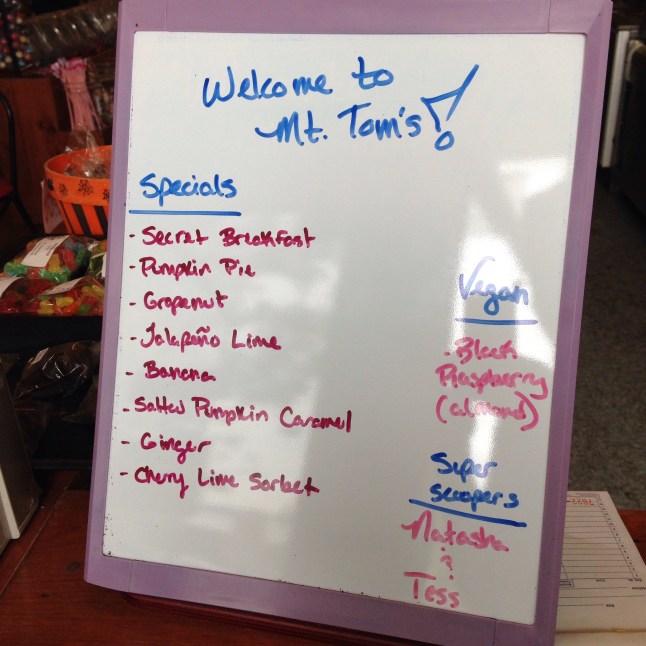 Welcome to
Mt. Tom's!
Specials
- Secret Breakfast
- Pumpkin Pie
- Grapenut
- Jalapeño Lime
- Banana
- Salted Pumpkin Caramel
- Ginger
- Cherry Lime Sorbet
Vegan
- Black
Raspberry
(almond)
Super
Scoopers
Natasha
&
Tess